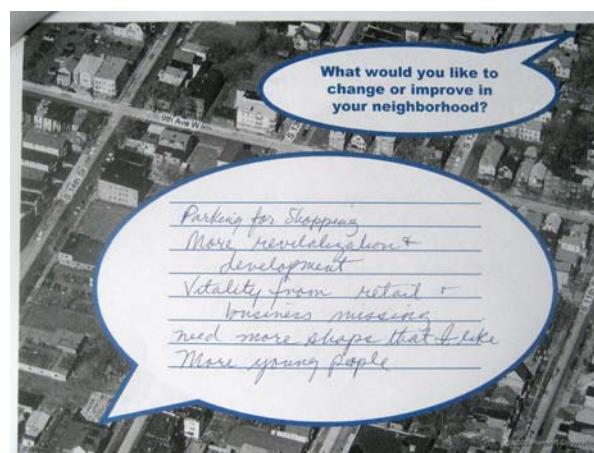 What would you like to
change or improve in
your neighborhood?
9th Ave W
S 14th St
Parking for Shopping
More revitalization &
development
Vitality from retail +
business missing
need more shops that I like
More young people